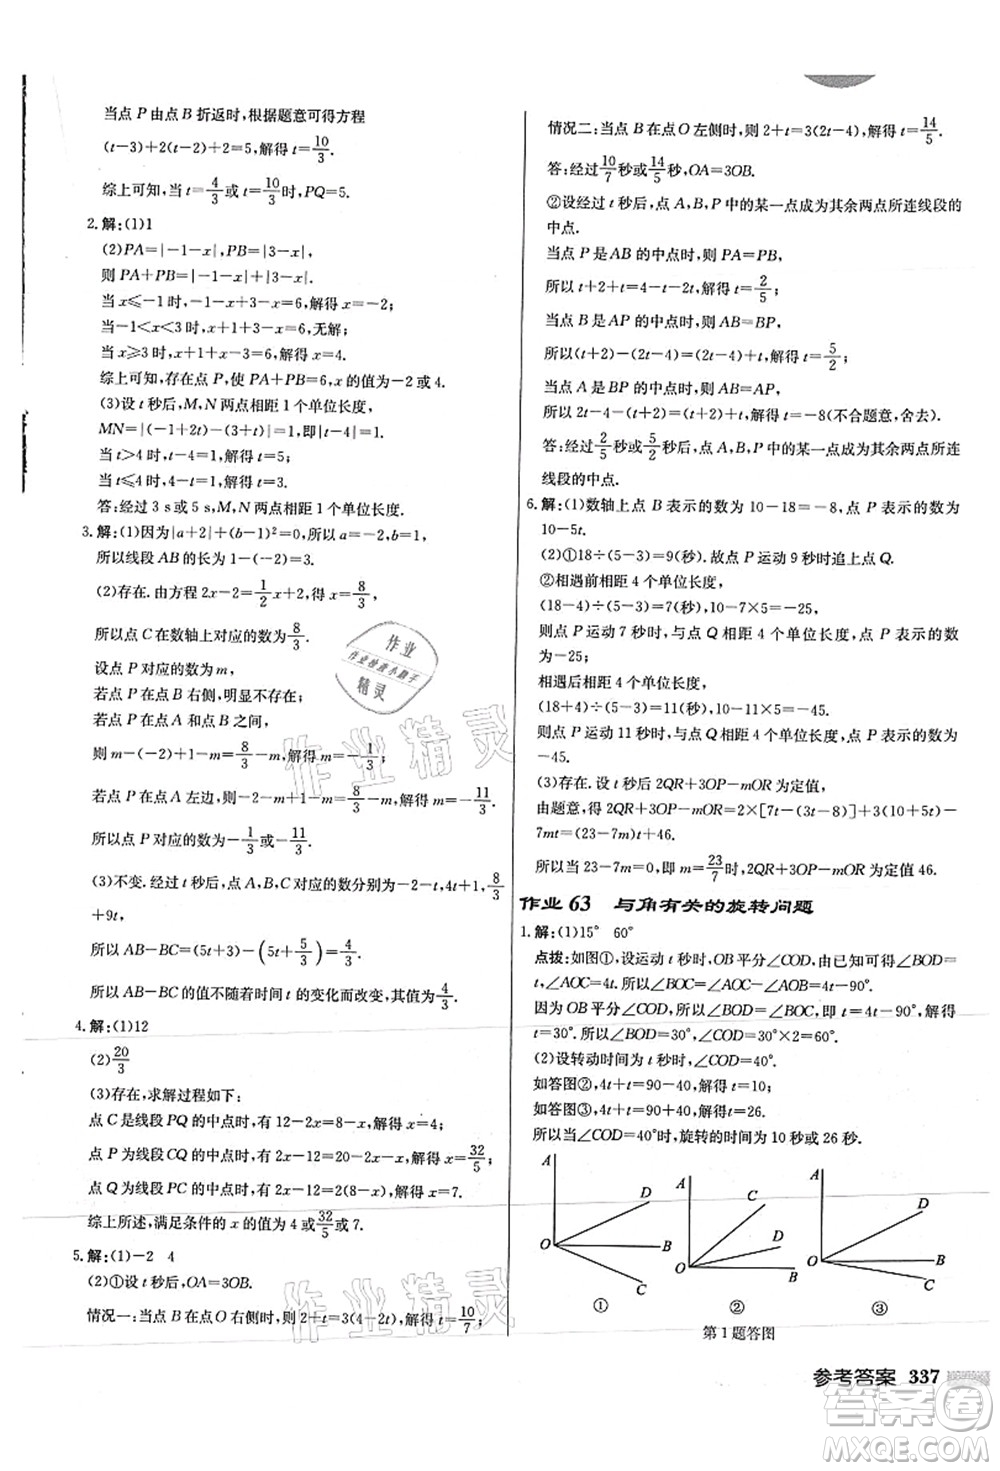 当点 P 由点 B 折返时,根据题意可得方程
(t-3)+2(t-2)+2=5,解得 t=10/3.
综上可知,当 t=4/3或 t=10/3时,PQ=5.
2.解:(1)1
(2)PA=|-1-x|,PB=|3-x|,
则 PA+PB=|-1-x|+|3-x|.
当 x≤-1 时,-1-x+3-x=6,解得 x=-2;
当-1<x<3 时,x+1+3-x=6,无解;
当 x≥3 时,x+1+x-3=6,解得 x=4.
综上可知,存在点 P,使 PA+PB=6,x 的值为-2 或 4.
(3)设 t 秒后,M,N 两点相距 1 个单位长度,
MN=|(-1+2t)-(3+t)|=1,即|t-4|=1.
当 t>4 时,t-4=1,解得 t=5;
当 t≤4 时,4-t=1,解得 t=3.
答:经过 3 s 或 5 s,M,N 两点相距 1 个单位长度.
3.解:(1)因为|a+2|+(b-1)²=0,所以 a=-2,b=1,
所以线段 AB 的长为 1-(-2)=3.
(2)存在.由方程 2x-2=1/2x+2,得 x=8/3,
所以点 C 在数轴上对应的数为8/3.
设点 P 对应的数为 m,
若点 P 在点 B 右侧,明显不存在;
若点 P 在点 A 和点 B 之间,
则 m-(-2)+1-m=8/3-m,解得 m=-1/3;
若点 P 在点 A 左边,则-2-m+1-m=8/3-m,解得 m=-11/3.
所以点 P 对应的数为-1/3或-11/3.
(3)不变.经过 t 秒后,点 A,B,C 对应的数分别为-t-2,4t+1,8/3
+9t,
所以 AB-BC=(5t+3)-(5t+5/3)=4/3,
所以 AB-BC 的值不随着时间 t 的变化而改变,值为4/3.
4.解:(1)12
(2)20/3
(3)存在,求解过程如下:
点 C 是线段 PQ 的中点时,有 12-2x=8-x,解得 x=4;
点 P 为线段 CQ 的中点时,有 2x-12=1/2(8-x),解得 x=32/5;
点 Q 为线段 PC 的中点时,有 2x-12=2(8-x),解得 x=7.
综上所述,满足条件的 x 的值为 4 或32/5或 7.
5.解:(1)-2 4
(2)①设 t 秒后,OA=3OB.
情况一:当点 B 在点 O 右侧时,则 2+t=3(4-2t),解得 t=10/7;
情况二:当点 B 在点 O 左侧时,则 2+t=3(2t-4),解得 t=14/5.
答:经过10/7秒或14/5秒,OA=3OB.
②设经过 t 秒后,点 A,B,P 中的某一点成为其余两点所连线段的
中点.
当点 P 是 AB 的中点时,则 PA=PB,
所以 t+2+t=4-2t-t,解得 t=2/5;
当点 B 是 AP 的中点时,则 AB=BP,
所以(t+2)+(4-2t)=t-(4-2t),解得 t=5/2;
当点 A 是 BP 的中点时,则 AB=AP,
所以 2t-4-(t+2)=(t+2)+t,解得 t=-8(不合题意,舍去).
答:经过2/5秒或5/2秒后,点 A,B,P 中的某一点成为其余两点所连
线段的中点.
6.解:(1)数轴上点 B 表示的数为 10-18=-8,点 P 表示的数为
10-5t.
(2)①18÷(5-3)=9(秒).故点 P 运动 9 秒时追上点 Q.
②相遇前相距 4 个单位长度,
(18-4)÷(5-3)=7(秒),10-7×5=-25.
则点 P 运动 7 秒时,与点 Q 相距 4 个单位长度,点 P 表示的数为
-25;
相遇后相距 4 个单位长度,
(18+4)÷(5-3)=11(秒),10-11×5=-45.
则点 P 运动 11 秒时,与点 Q 相距 4 个单位长度,点 P 表示的数为
-45.
(3)存在.设 t 秒后 2QR+3OP-mOR 为定值,
由题意,得 2QR+3OP-mOR=2×[7t-(3t-8)]+3(10+5t)-
7mt=(23-7m)t+46.
所以当 23-7m=0,即 m=23/7时,2QR+3OP-mOR 为定值 46.
作业 63 与角有关的旋转问题
1.解:(1)15° 60°
点拨:如图①,设运动 t 秒时,OB 平分∠COD,由题可得∠BOD=
t,∠AOC=4t,所以∠BOC=∠AOC-∠AOB=4t-90°.
因为 OB 平分∠COD,所以∠BOD=∠BOC,即 t=4t-90°,解得
t=30°.所以∠BOD=30°,∠COD=30°×2=60°.
(2)设转动时间为 t 秒时,∠COD=40°.
如答图②,4t+t=90-40,解得 t=10;
如答图③,4t+t=90+40,解得 t=26.
所以当∠COD=40°时,旋转的时间为 10 秒或 26 秒.
A D O B C ①
A C D O B ②
A D O B C ③
第 1 题答图
参考答案 337
作业
作业检查小助手
精灵
作业精灵
作业精灵
答案圈
MXQE.COM